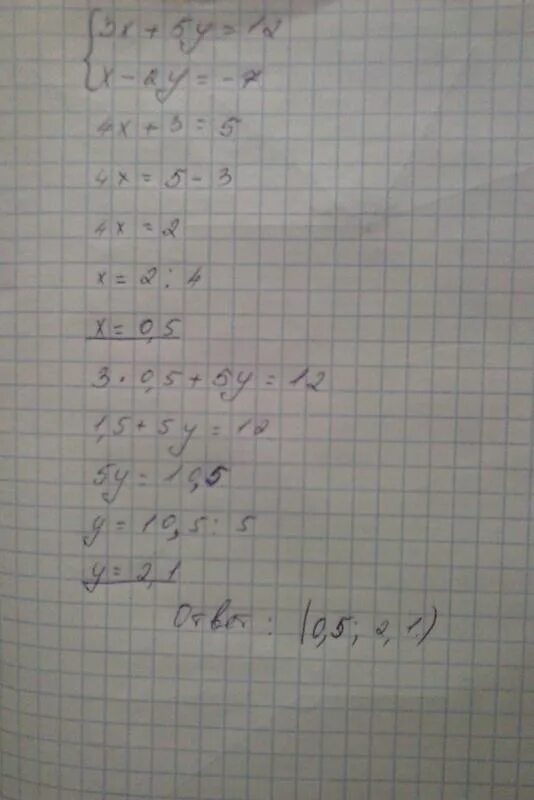 {3x + 5y = 12
x - 2y = -7
4x + 3 = 5
4x = 5 - 3
4x = 2
x = 2 : 4
x = 0,5
3 · 0,5 + 5y = 12
1,5 + 5y = 12
5y = 10,5
y = 10,5 : 5
y = 2,1
Ответ: (0,5; 2,1)